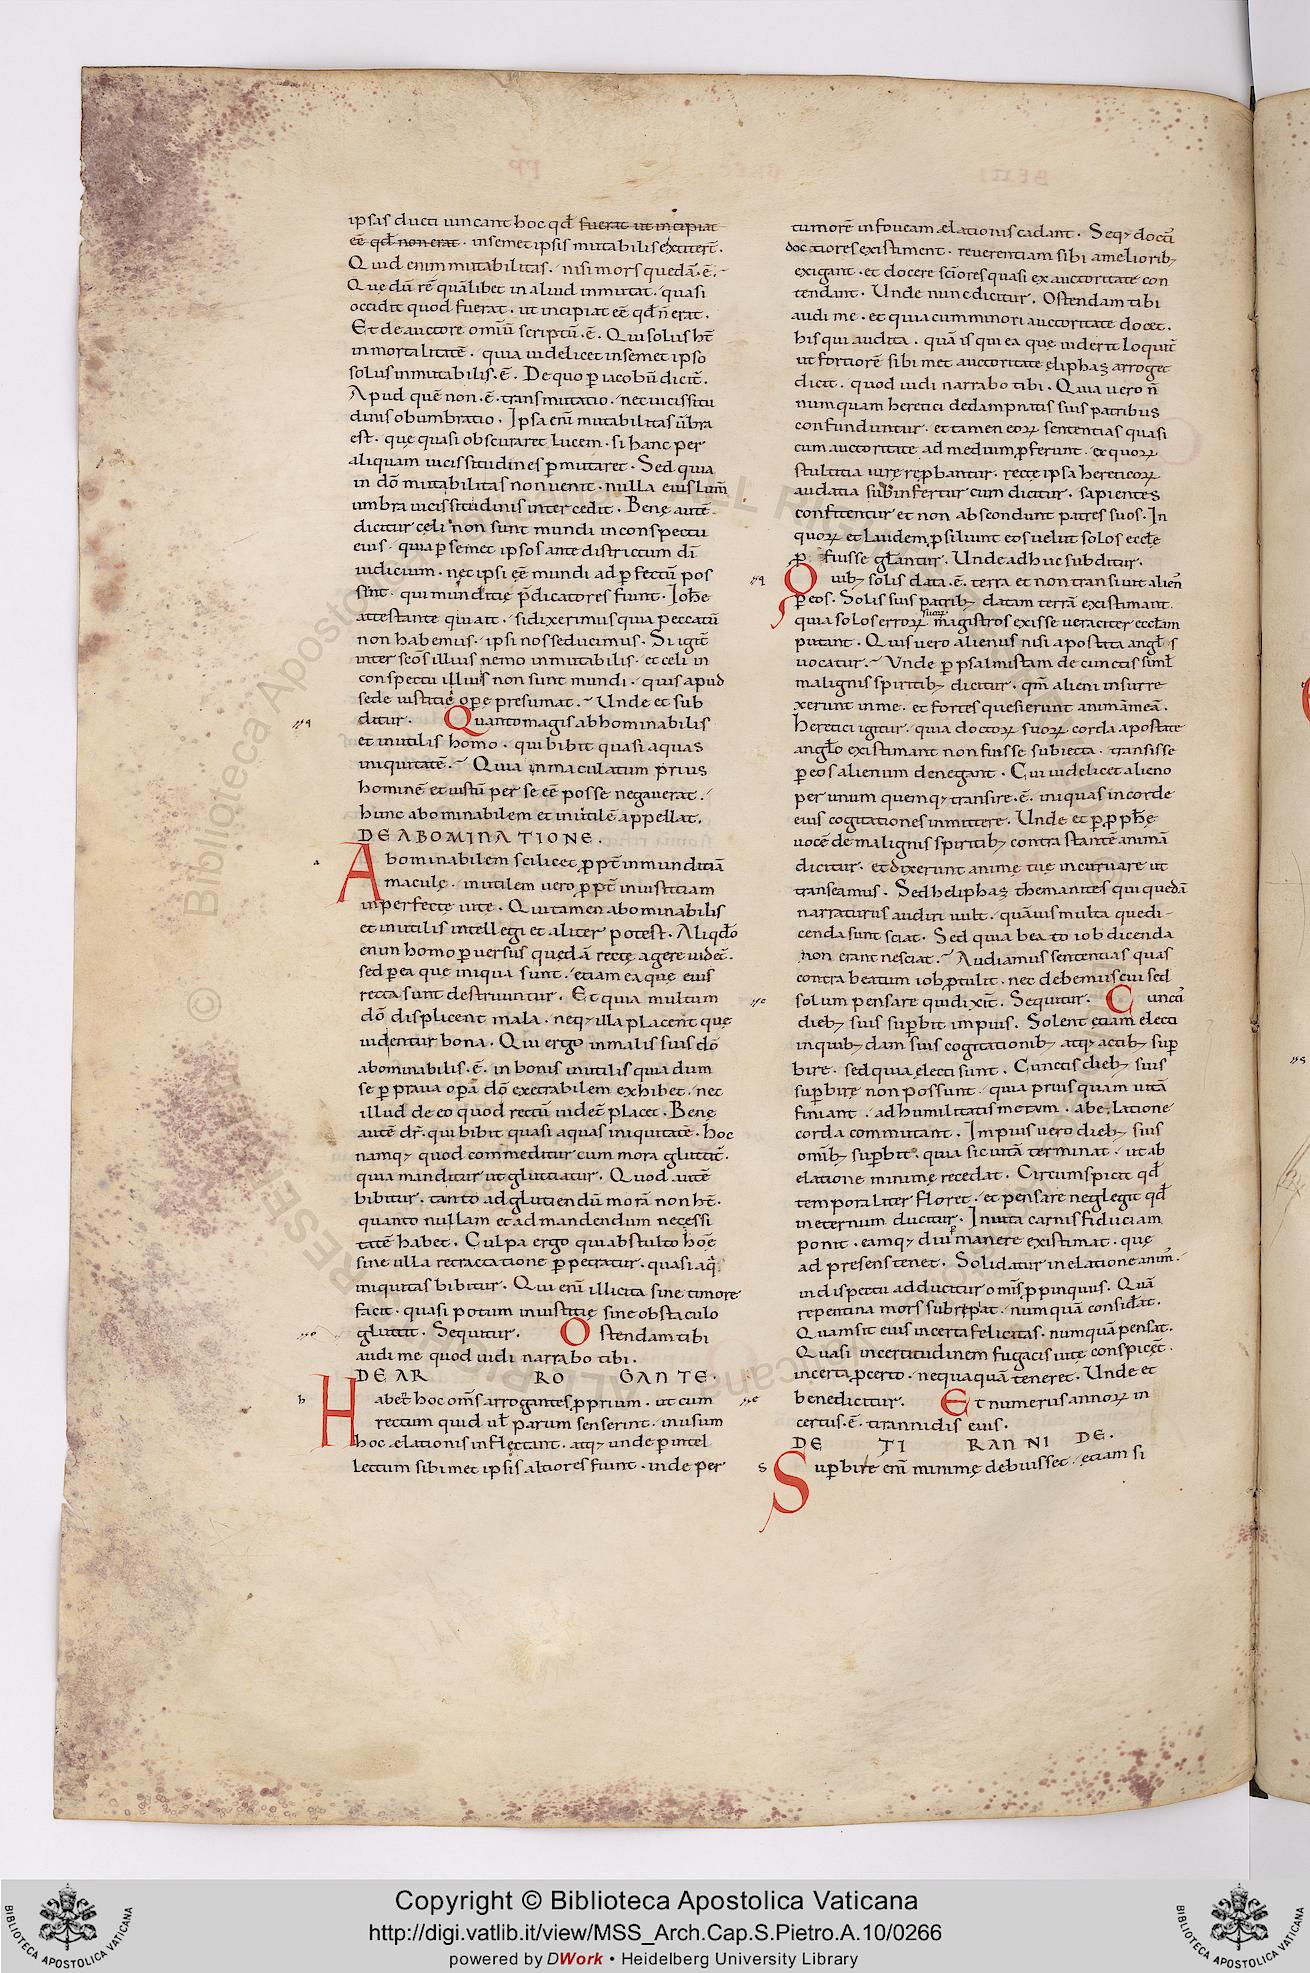 ipsas ducti uincant hoc qđ fuerat ut incipiat
eē qđ non erat · insemet ipsis mutabilis extiter̄.
Quid enim mutabilitas · nisi mors quedā · ē ·
Que dū rē quālibet in aliud inmutat · quasi
occidit quod fuerat · ut incipiat eē qđ n̄ erat ·
Et de auctore omiū scriptū · ē · Qui solus ht̄
inmortalitatē · quia uidelicet insemet ipso
solus inmutabilis · ē · De quo p iacobū dicit̄.
Apud quē non · ē · transmutatio · nec uicissitu
dinis obumbratio · Ipsa enī mutabilitas ūbra
est · quę quasi obscuraret lucem · si hanc per
aliquam uicissitudines pmutaret · Sed quia
in dō mutabilitas non uenit · nulla eius lum̄
umbra uicissitudinis inter cedit · Benę autē
dicitur cęli non sunt mundi in conspectu
eius · quia p semet ipsos ante districtum dī
iudicium · nec ipsi eē mundi ad pfectū pos
sint · qui munditię p̄dicatores fiunt · Ioh̄e
attestante qui ait · si dixerimus quia peccatū
non habemus · ipsi nos seducimus · Si igit̄
inter scōs illius nemo inmutabilis · et celi in
conspectu illius non sunt mundi · quis apud
sede iustitię opere presumat · Unde et sub
ditur · Quanto magis abhominabilis
et inutilis homo · qui bibit quasi aquas
iniquitatē · Quia inmaculatum prius
hominē et iustū per se eē posse negauerat ·
hunc abominabilem et inutilē appellat.
DE ABOMINATIONE.
a Abominabilem scilicet ppt̄ inmunditiā
maculę · inutilem uero ppt̄ iniustitiam
inperfectę uitę · Qui tamen abominabilis
et inutilis intellegi et aliter potest · Aliqđo
enim homo puersus quedā rectę agere uidet̄.
sed p ea que iniqua sunt · etiam ea que eius
recta sunt destruuntur · Et quia multum
dō displicent mala · neq; illa placent quę
uidentur bona · Qui ergo in malis suis dō
abominabilis · ē · in bonis inutilis quia dum
se p praua opā dō execrabilem exhibet · nec
illud de eo quod rectū uidet̄ placet · Benę
autē dr̄ · qui bibit quasi aquas iniquitatē · hoc
namq; quod commeditur cum mora gluttit̄.
quia manditur ut gluttiatur · Quod autē
bibitur · tanto ad glutiendū morā non ht̄.
quanto nullam et ad mandendum necessi
tatē habet · Culpa ergo qui ab stulto hoē
sine ulla retractatione ppetratur · quasi aq̄
iniquitas bibitur · Qui enī illicita sine timore
facit · quasi potum iniustitię sine obstaculo
gluttit · Sequitur · Ostendam tibi
audi me quod uidi narrabo tibi.
DE AR RO GANTE.
h Habet hoc om̄s arrogantes pprium · ut cum
rectum quid ul̄ parum senserint · in usum
hoc elationis inflectant · atq; unde p intel
lectum sibimet ipsis altiores fiunt · inde per
tumorē in foueam elationis cadant · Seq; doctī
doctiores existiment · reuerentiam sibi a meliorib;
exigant · et docere sc̄iores quasi ex auctoritate con
tendant · Unde nunc dicitur · Ostendam tibi
audi me · et quia cum minori auctoritate docet ·
his qui audita · quā is qui ea quę uiderit loquit̄
ut fortiorē sibi met auctoritate eliphaz arroget
dicit · quod uidi narrabo tibi · Quia uero n̄
numquam heretici de dampnatis suis patribus
confunduntur · et tamen eorum sententias quasi
cum auctoritate ad medium pferunt · ex quorum
stultitia iurę reprehantur · recte ipsa hereticorum
audatia subinfertur cum dicitur · sapientes
confitentur et non abscondunt patres suos · In
quorum et laudem psiliunt eos uelut solos eccłę
p fuisse głantur · Unde adhuc subditur.
Quib; solis data · ē · terra et non transiuit alien̄
p eos · Solis suis patrib; datam terrā existimant ·
quia solos errorum suorum magistros exisse ueraciter ecctam
putant · Quis uero alienus nisi apostata angł s
uocatur · Unde p psalmistam de cunctis simł
malignis spiritib; dicitur · qm̄ alieni insurre
xerunt in me · et fortes quesierunt animā meā ·
heretici igitur · quia doctorum suorum corda apostate
angło existimant non fuisse subiecta · transisse
p eos alienum denegant · Cui uidelicet alieno
per unum quemq; transire · ē · iniquas in corde
eius cogitationes inmittere · Unde et p p pph̄ę
uocē de malignis spiritib; contra stantē animā
dicitur · et dixerunt animę tuę incuruare ut
transeamus · Sed heliphaz themanites qui quedā
narraturus audiri uult · quāuis multa que di
cenda sunt sciat · Sed quia bea to iob dicenda
non erant nesciat · Audiamus sententias quas
contra beatum iob ptulit · nec debemus eui sed
solum pensare qui dixit̄ · Sequitur · Cuncti
dieb; suis supbit impius · Solent etiam electi
in quib;dam suis cogitationib; atq; actib; sup
bire · sed quia electi sunt · Cunctis dieb; suis
supbirę non possunt · quia prius quam uitā
finiant · ad humilitatis metum · ab elatione
corda commutant · Impius uero dieb; suis
omīb; supbit · quia sic uitā terminat · ut ab
elatione minimę recedat · Circumspicit qđ
temporaliter floret · et pensare neglegit qđ
in eternum ducitur · In uita carnis fiduciam
ponit · eamq; diu manere existimat · quę
ad presens tenet · Solidatur in elatione anim̄ ·
in dispectu adducitur om̄s ppinquus · Quā
repentina mors subrepat · numquā considāt ·
Quam sit eius incerta felicitas · numquā pensat ·
Quasi incertitudinem fugacis uitę conspicęt ·
incerta p certo · nequaquā teneret · Unde et
benedicitur · Et numerus annorum in
certus · ē · tirannidis eius ·
DE TI RANNI DE.
s Supbire enī minimę debuisset · etiam si
Copyright © Biblioteca Apostolica Vaticana
http://digi.vatlib.it/view/MSS_Arch.Cap.S.Pietro.A.10/0266
powered by DWork • Heidelberg University Library